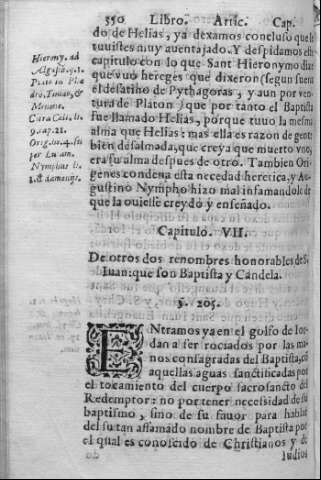 350 Libro. Artic. Cap.
do de Helias, ya dexamos concluso que le
tuuistes muy auentajado. Y despidamos este
capitulo con lo que Sant Hieronymo dize
que vuo hereges que dixeron (segun fuera
el desatino de Pythagoras, y aun por ven-
tura de Platon) que por tanto el Baptista
fue llamado Helias, porque tuuo la mesma
alma que Helias: mas ella es razon de gente
bien desalmada, que creya que muerto vno,
era su alma despues de otro. Tambien Ori-
genes condena esta necedad heretica, y Au-
gustino Nympho hizo mal infamandole de
que la ouiesse creydo y enseñado.
Hierony. ad
Algasiã. q. 1.
Plato in Phæ
dro, Timæo, &
Menone.
9. ap. 21.
Orig. to. 4. su
per Lucam.
Nymphus li.
1. de dæmonijs.
Capitulo. VII.
De otros dos renombres honorables de S.
Iuan: que son Baptista y Candela.
§. 205.
ENtramos ya en el golfo de Ior-
dan a ser rociados por las ma-
nos consagradas del Baptista, cõ
aquellas aguas sanctificadas por
el tocamiento del cuerpo sacrosancto del
Redemptor: no por tener necessidad de su
baptismo, sino de su fauor para hablar
del su tan affamado nombre de Baptista por
el qual es conoscido de Christianos y de
Iudios